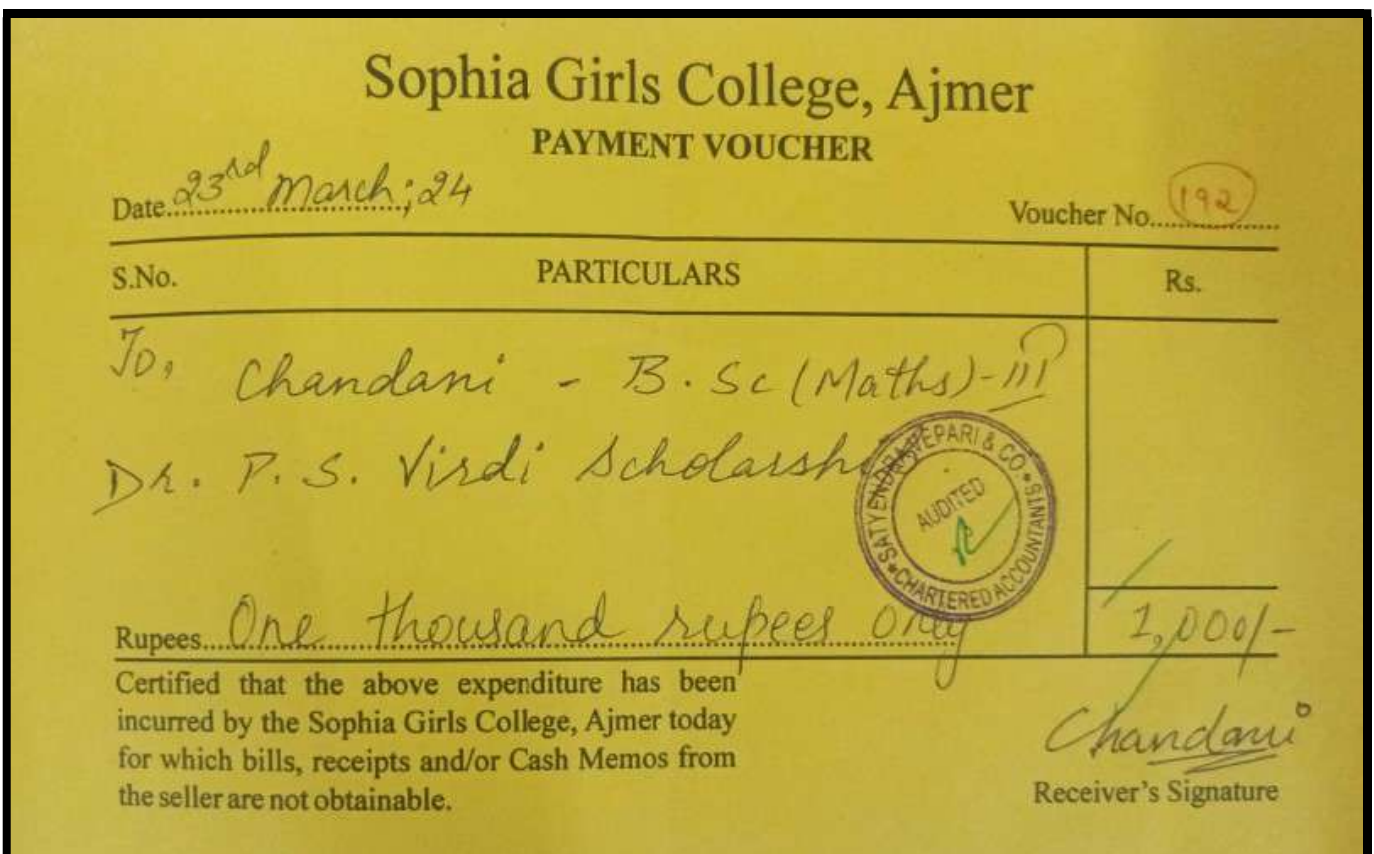 Sophia Girls College, Ajmer
PAYMENT VOUCHER
Date 23rd March, 24
Voucher No. 192
S.No. PARTICULARS Rs.
To, Chandani - B.Sc (Maths)-III
Dr. P. S. Virdi Scholarsh
SATYENDRA VEPARI & CO.
AUDITED
CHARTERED ACCOUNTANTS
Rupees One thousand rupees only 1,000/-
Certified that the above expenditure has been
incurred by the Sophia Girls College, Ajmer today
for which bills, receipts and/or Cash Memos from
the seller are not obtainable.
Chandani
Receiver's Signature